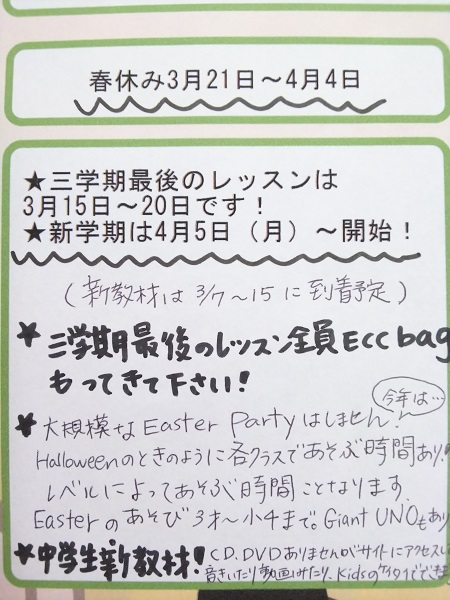 春休み3月21日～4月4日
★三学期最後のレッスンは
3月15日～20日です！
★新学期は4月5日（月）～開始！
（新教材は3/7～15に到着予定）
★三学期最後のレッスン全員Ecc bag
もってきて下さい！
今年は…
★大規模なEaster Partyはしません！
Halloweenのときのように各クラスであそぶ時間あり！
レベルによってあそぶ時間ことなります。
Easterのあそび3才～小4まで。Giant UNOもあり
★中学生新教材！CD、DVDありませんがサイトにアクセスし
音きいたり動画みたり、Kidsの